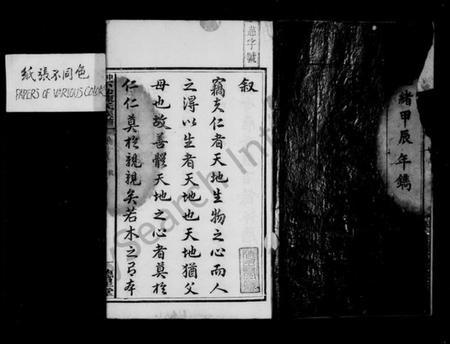 紙張不同色
PAPERS OF VARIOUS COLOR
緒甲辰年鐫
字號
敘
竊文仁者天地生物之心而人
之得以生者天地也天地猶父
母也故善體天地之心者莫於
仁仁莫於親親矣若木之有本
Search Inte